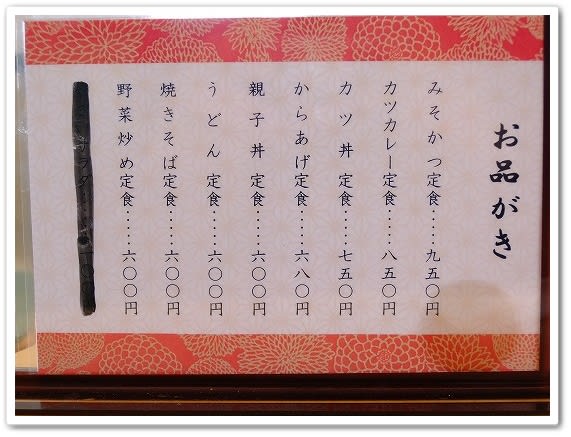 お品がき
みそかつ定食‥‥九五〇円
カツカレー定食‥‥八五〇円
カツ丼 定食‥‥七五〇円
からあげ定食‥‥六八〇円
親子丼 定食‥‥六〇〇円
うどん 定食‥‥六〇〇円
焼きそば定食‥‥六〇〇円
野菜炒め定食‥‥六〇〇円